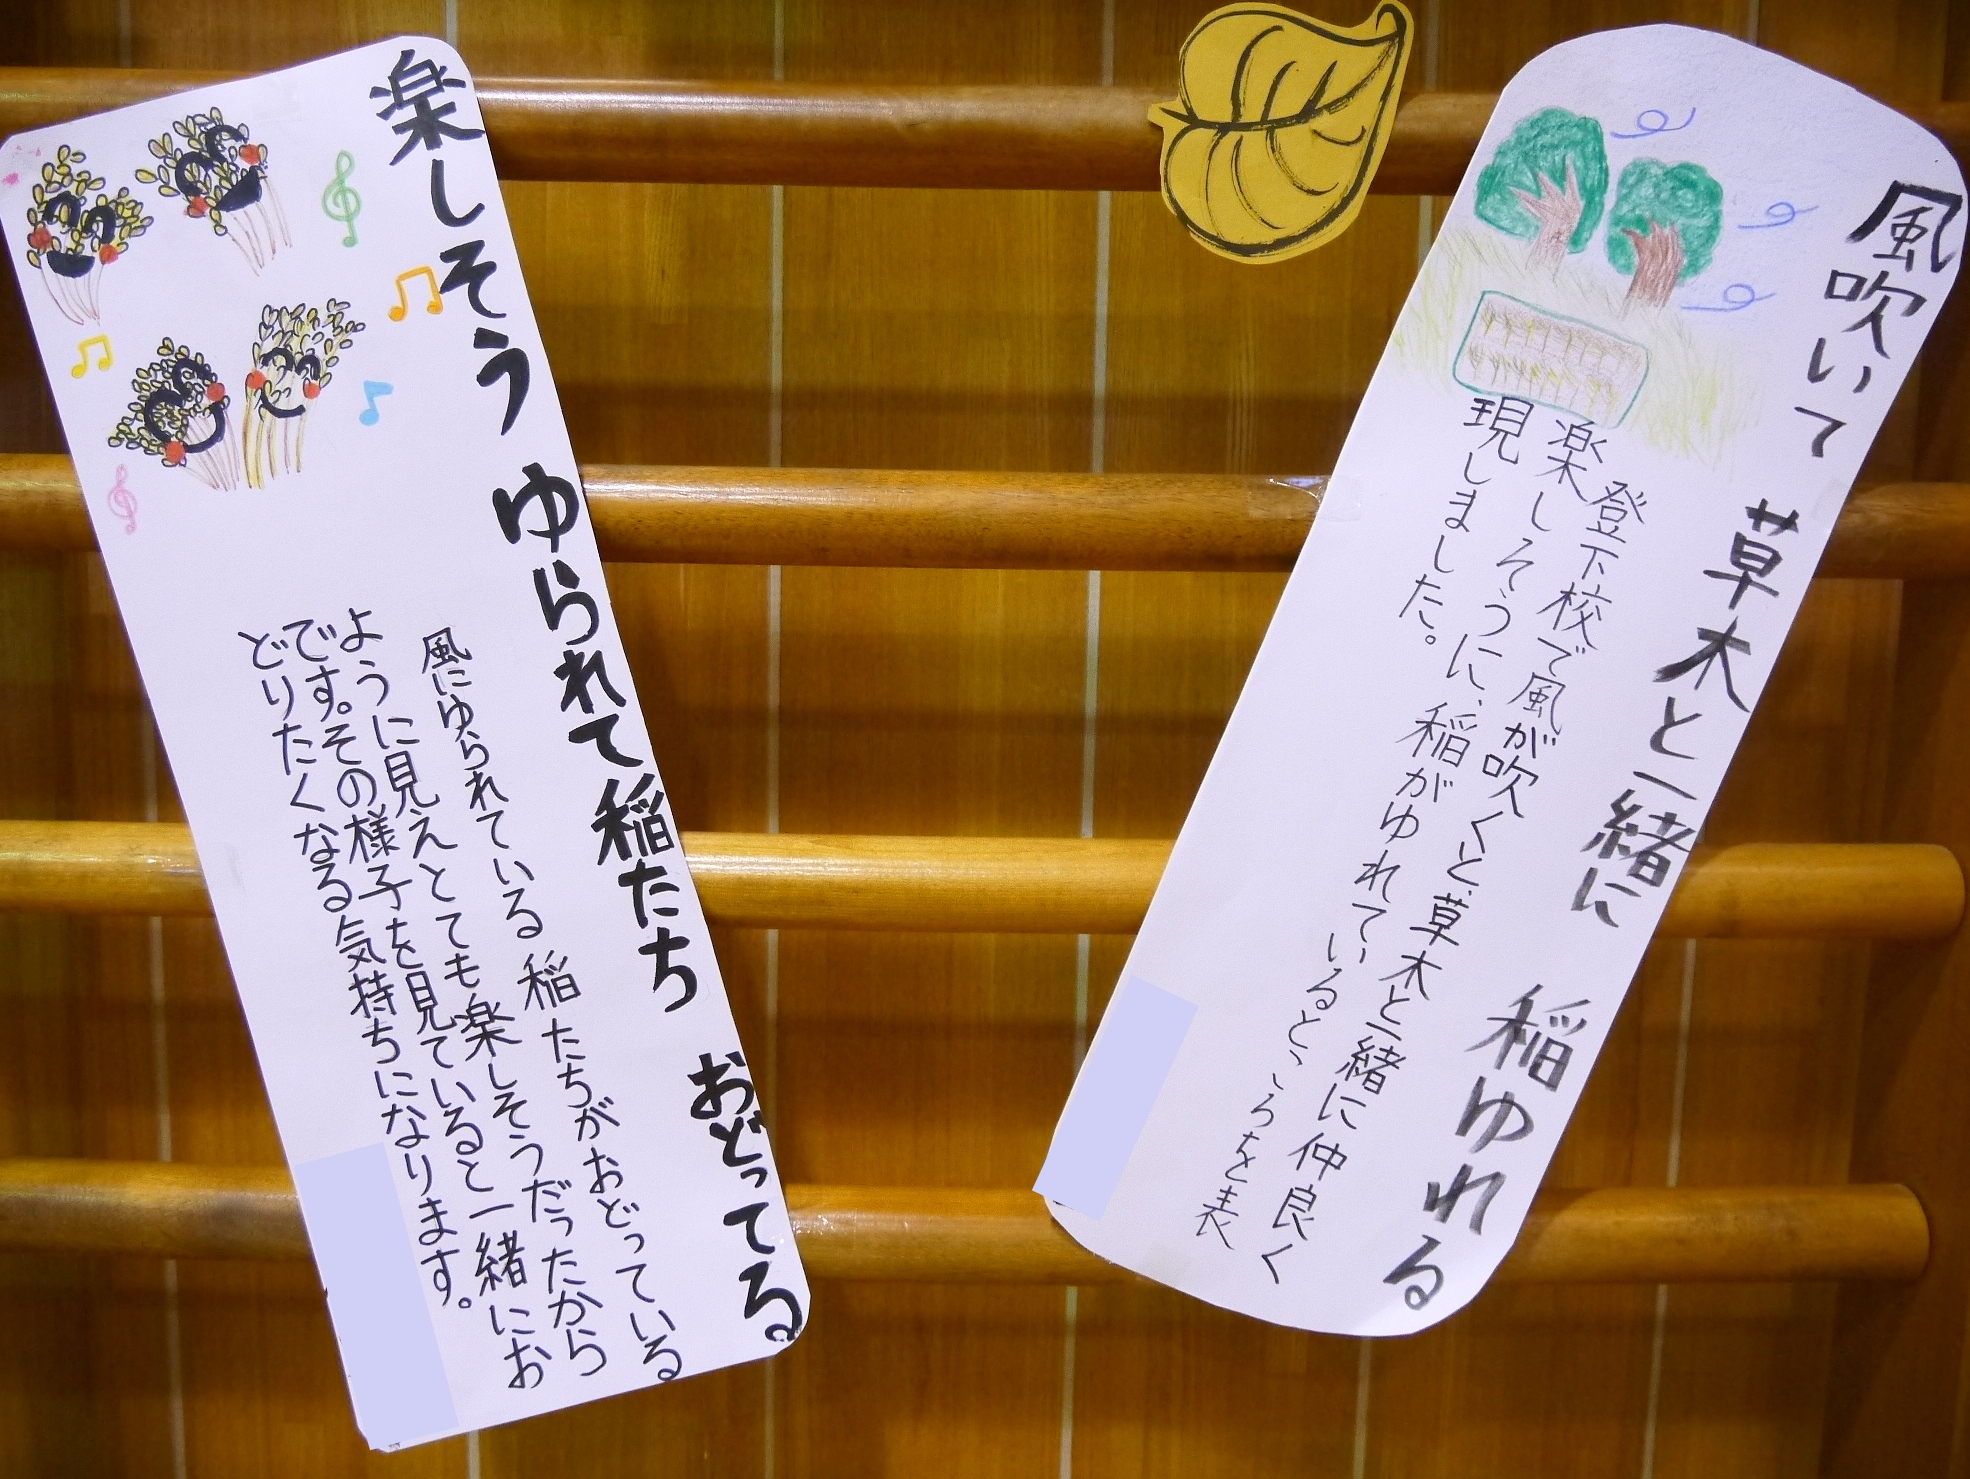 風吹いて 草木と一緒に 稲ゆれる
登下校で風が吹くと、草木と一緒に仲良く
楽しそうに、稲がゆれているところを表
現しました。
楽しそう ゆられて稲たち おどってる
風にゆられている稲たちがおどっている
ように見えとても楽しそうだったから
です。その様子を見ていると一緒にお
どりたくなる気持ちになります。